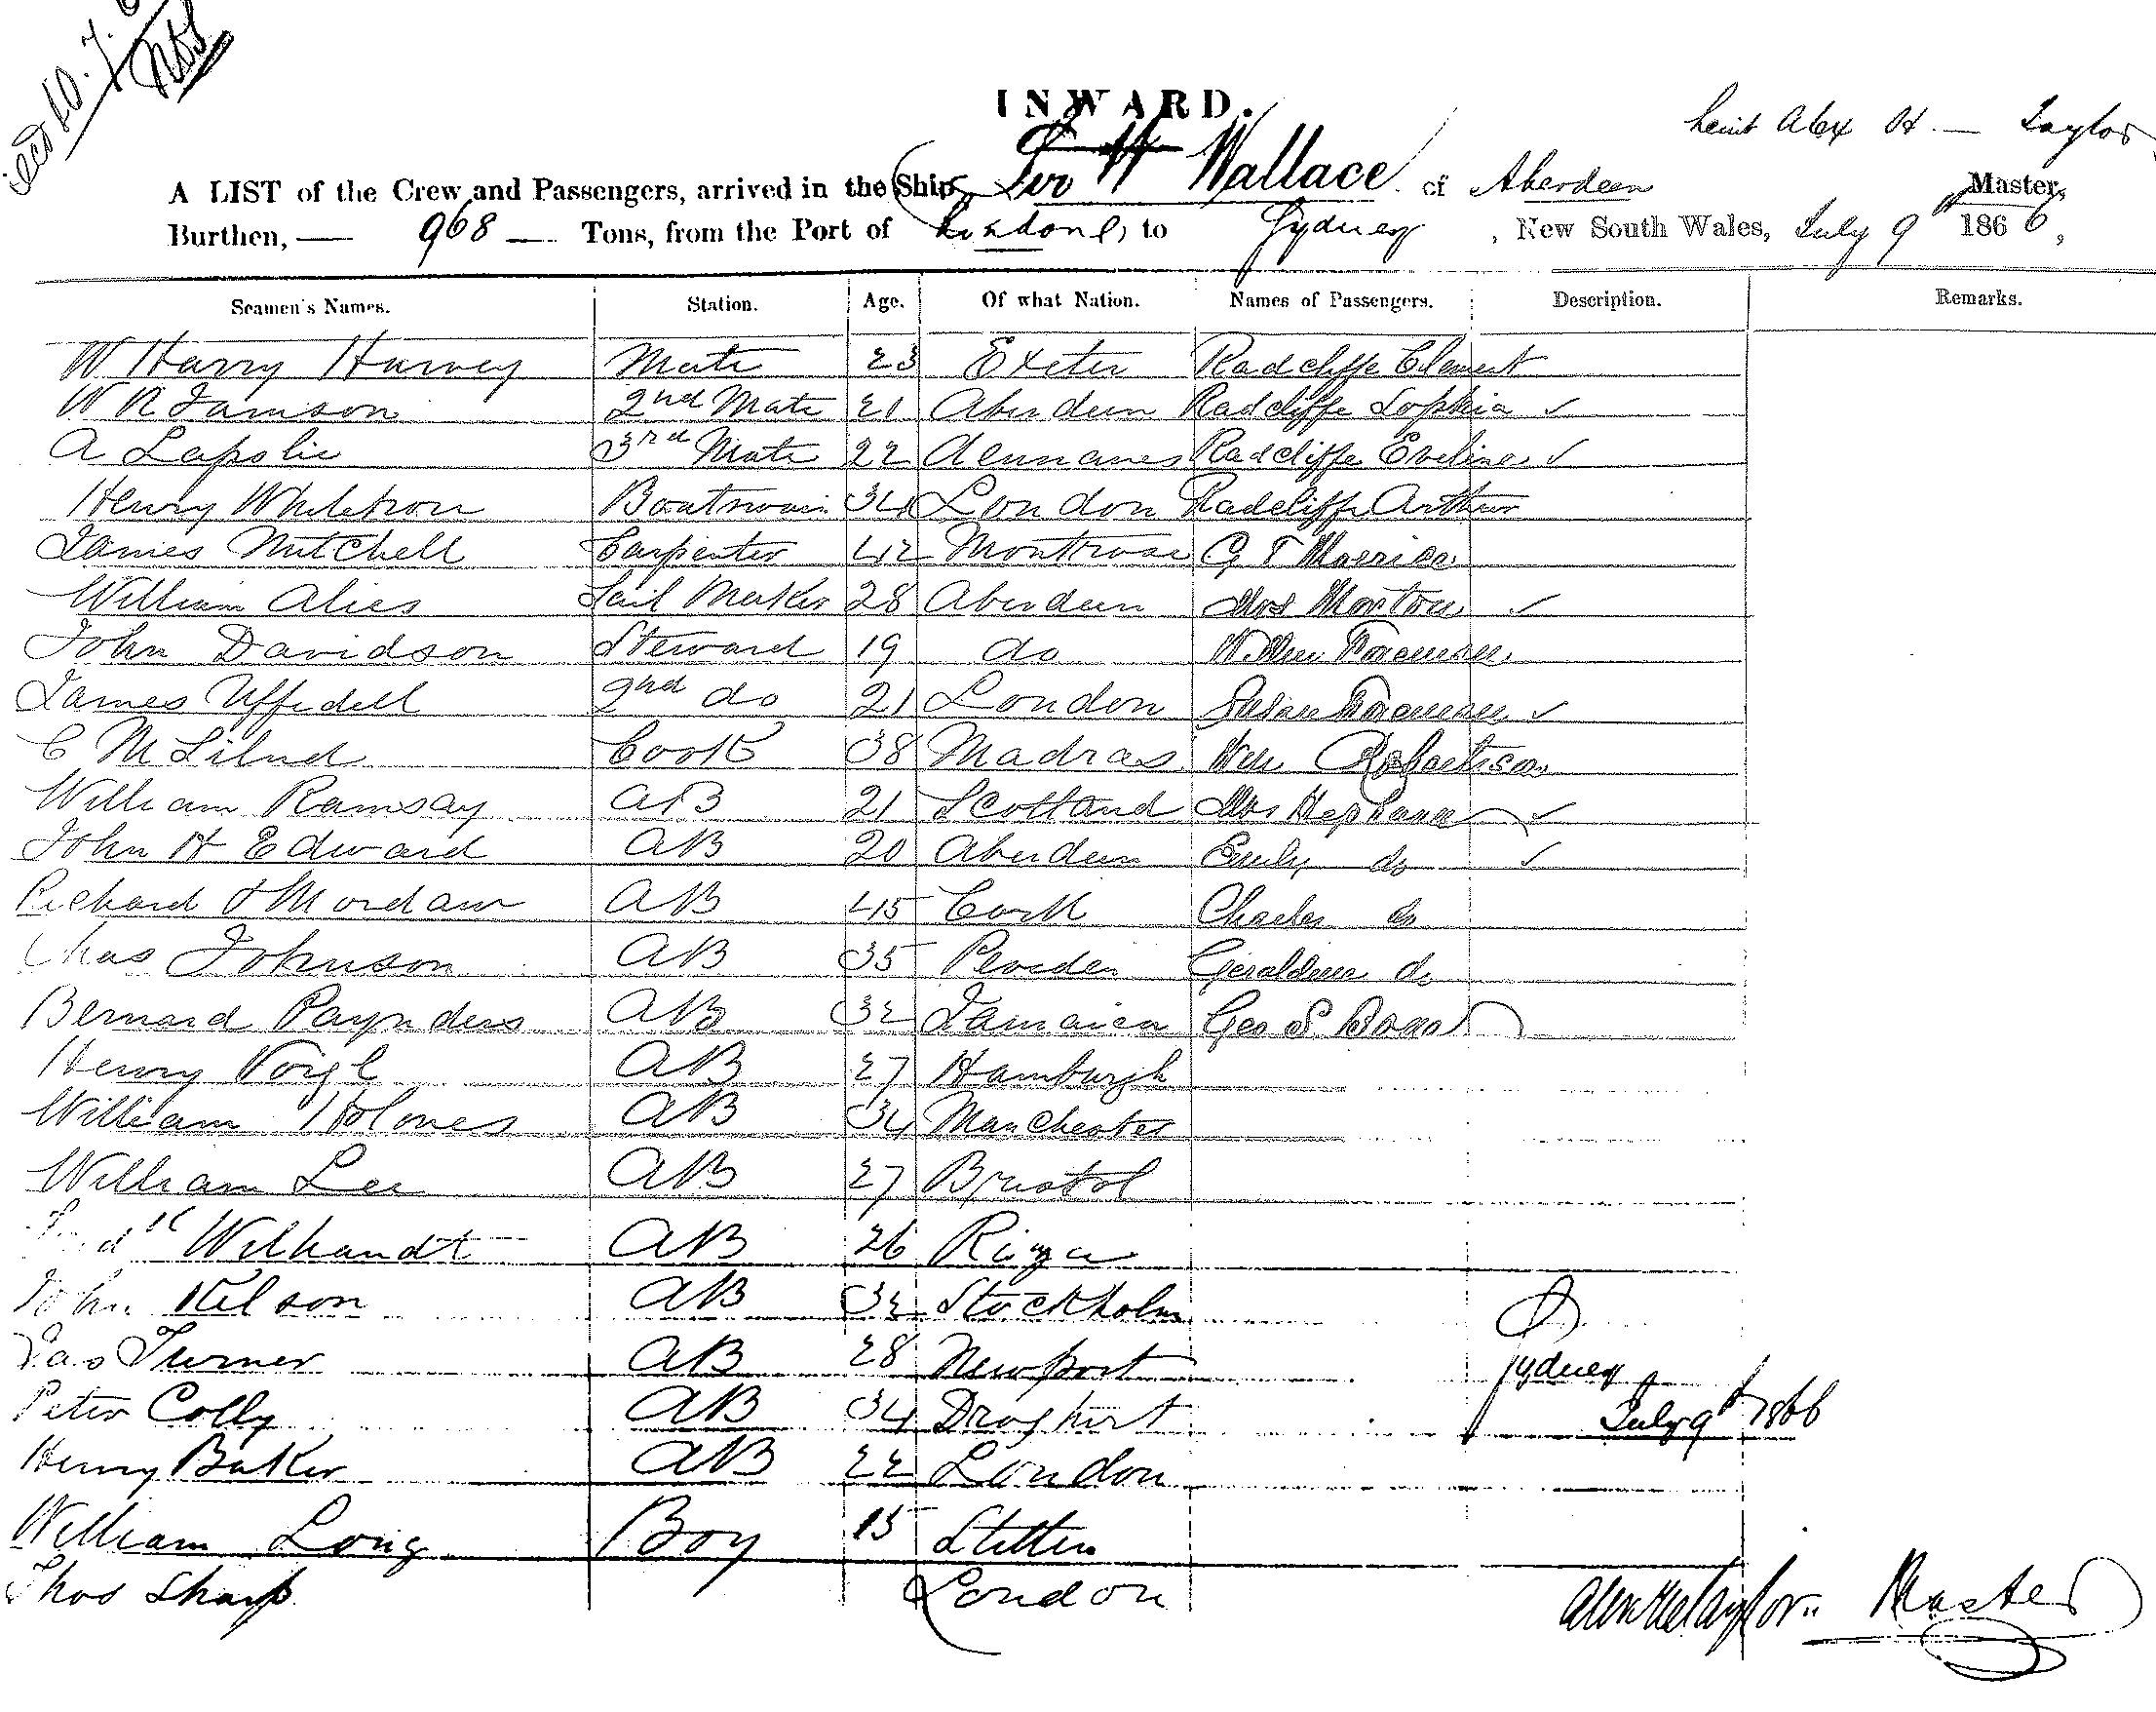 INWARD.
Lieut Alex H. — Taylor
A LIST of the Crew and Passengers, arrived in the Ship Wallace of Aberdeen Master,
Burthen, — 968 — Tons, from the Port of London, to Sydney, New South Wales, July 9th 1866,
Seamen's Names. Station. Age. Of what Nation. Names of Passengers. Description. Remarks.
W Harry Harvey Mate 23 Exeter Radcliffe Clement
W R Jamson 2nd Mate 21 Aberdeen Radcliffe Sophia ✓
A Laspolie 3rd Mate 22 Radcliffe Eveline ✓
Henry Boatswain 34 London Radcliffe Arthur
James Mitchell Carpenter 42 Montrose G T
William Alies Sail Maker 28 Aberdeen Mrs Morton ✓
John Davidson Steward 19 do Foreman
James Uffidell 2nd do 21 London Susan Foreman ✓
C M Cook 38 Madras Wm Robertson
William Ramsay AB 21 Scotland Mrs ✓
John H Edward AB 20 Aberdeen Emily do ✓
Richard AB 45 Cork Charles do
Chas Johnson AB 35 Geraldine do
Bernard Paynders AB 32 Jamaica Geo S.
Henry Voigt AB 27 Hamburgh
William Holmes AB 34 Manchester
William Lee AB 27 Bristol
Wilhandt AB 26 Riga
John Nelson AB 32 Stockholm
Jas Turner AB 28 Newport Sydney
Peter Colly AB 34 July 9th 1866
Henry Baker AB 22 London
William Long Boy 15 Stettin
Thos Sharp London Taylor Master